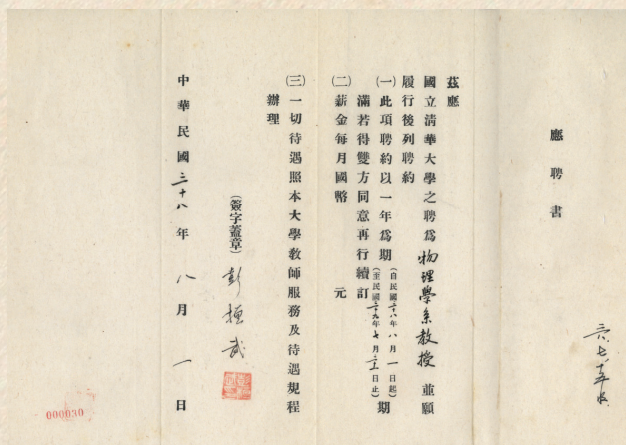 應聘書
茲應
國立清華大學之聘爲物理學系教授並願
履行後列聘約
(一)此項聘約以一年爲期(自民國三十八年八月一日起)(至民國三十九年七月三十一日止)期
滿若得雙方同意再行續訂
(二)薪金每月國幣　　元
(三)一切待遇照本大學教師服務及待遇規程
辦理
(簽字蓋章)彭桓武
中華民國三十八年八月一日
000030